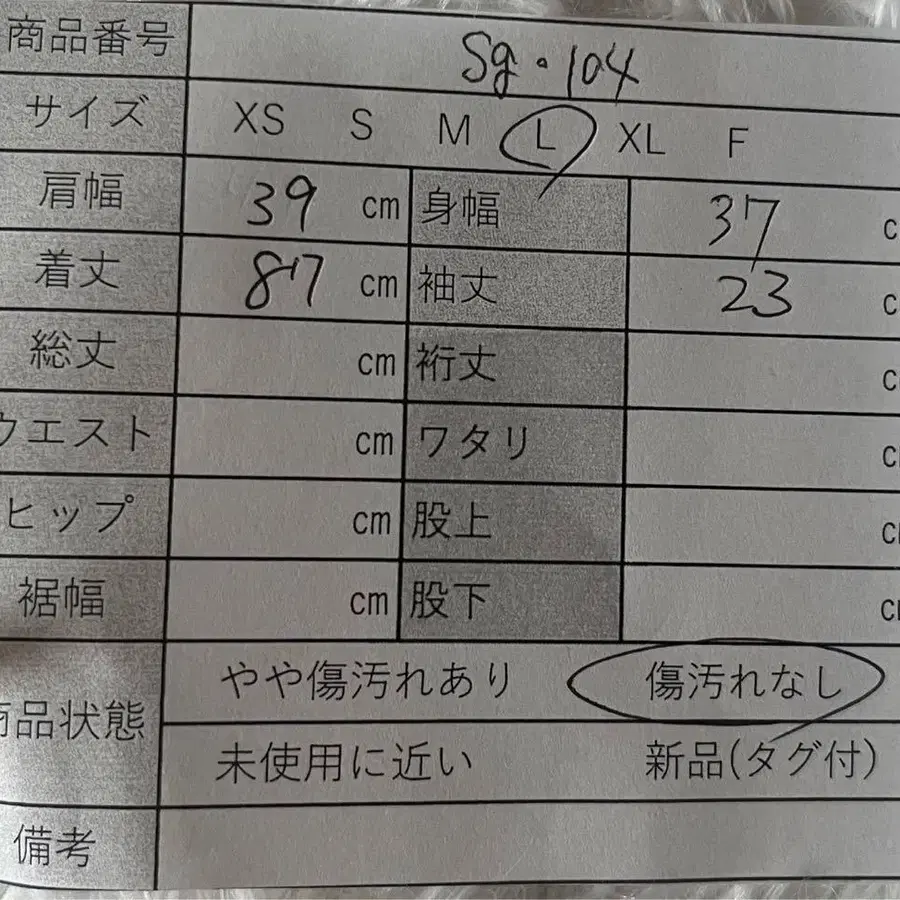 商品番号 Sg・104
サイズ XS S M L XL F
肩幅 39 cm 身幅 37 c
着丈 87 cm 袖丈 23 c
総丈 cm 裄丈 c
ウエスト cm ワタリ c
ヒップ cm 股上 cm
裾幅 cm 股下 cm
商品状態 やや傷汚れあり 傷汚れなし
未使用に近い 新品(タグ付)
備考